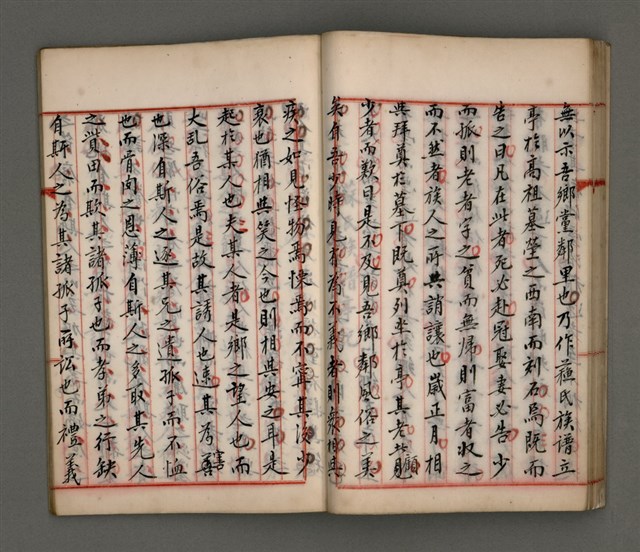 無以示吾鄉黨鄰里也乃作蘇氏族譜立
亭於高祖墓塋之西南而刻石焉既而
告之曰凡在此者死必赴冠娶妻必告少
而孤則老者字之貧而無歸則富者收之
而不然者族人之所共誚讓也嵗正月相
與拜奠於墓下既奠列坐於亭其老者顧
少者而歎曰是不及見吾鄉鄰風俗之美
矣自吾少時見有為不義者則衆相與
疾之如見怪物焉慄焉而不寧其後少
衰也猶相與笑之今也則相與安之耳是
起於某人也夫某人者是鄉之望人也而
大乱吾俗焉是故其誘人也速其為害
也深自斯人之逐其兄之遺孤子而不恤
也而骨肉之恩薄自斯人之多取其先人
之貲田而欺其諸孤子也而孝弟之行缺
自斯人之為其諸孤子所訟也而禮義